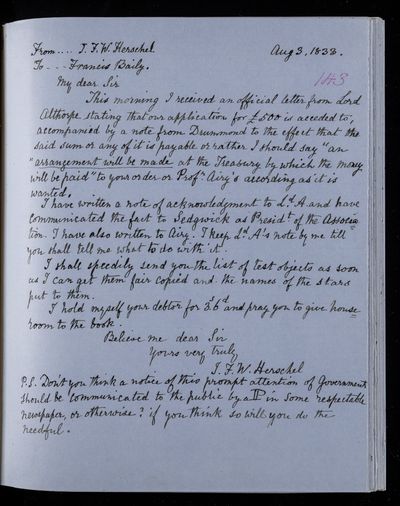 From.... J. F. W. Herschel Aug 3, 1833.
To - - - Francis Baily.
143
My dear Sir
This morning I received an official letter from Lord
Althorpe stating that our application for £500 is acceded to,
accompanied by a note from Drummond to the effect that the
said sum or any of it is payable or rather I should say "an
"arrangement will be made at the Treasury by which the money
will be paid" to your order or Profr. Airy's according as it is
wanted.
I have written a note of acknowledgment to Ld. A. and have
communicated the fact to Sedgwick as Presidt of the Associa=
tion. I have also written to Airy. I keep Ld. A's note by me till
you shall tell me what to do with it.
I shall speedily send you the list of test objects as soon
as I can get them fair copied and the names of the stars
put to them.
I hold myself your debtor for 3s. 6d and pray you to give house=
room to the book.
Believe me dear Sir
Yours very truly
J. F. W. Herschel
P.S. Don't you think a notice of this prompt attention of Government
should be communicated to the public by a P in some respectable
newspaper, or otherwise? if you think so will you do the
needful.